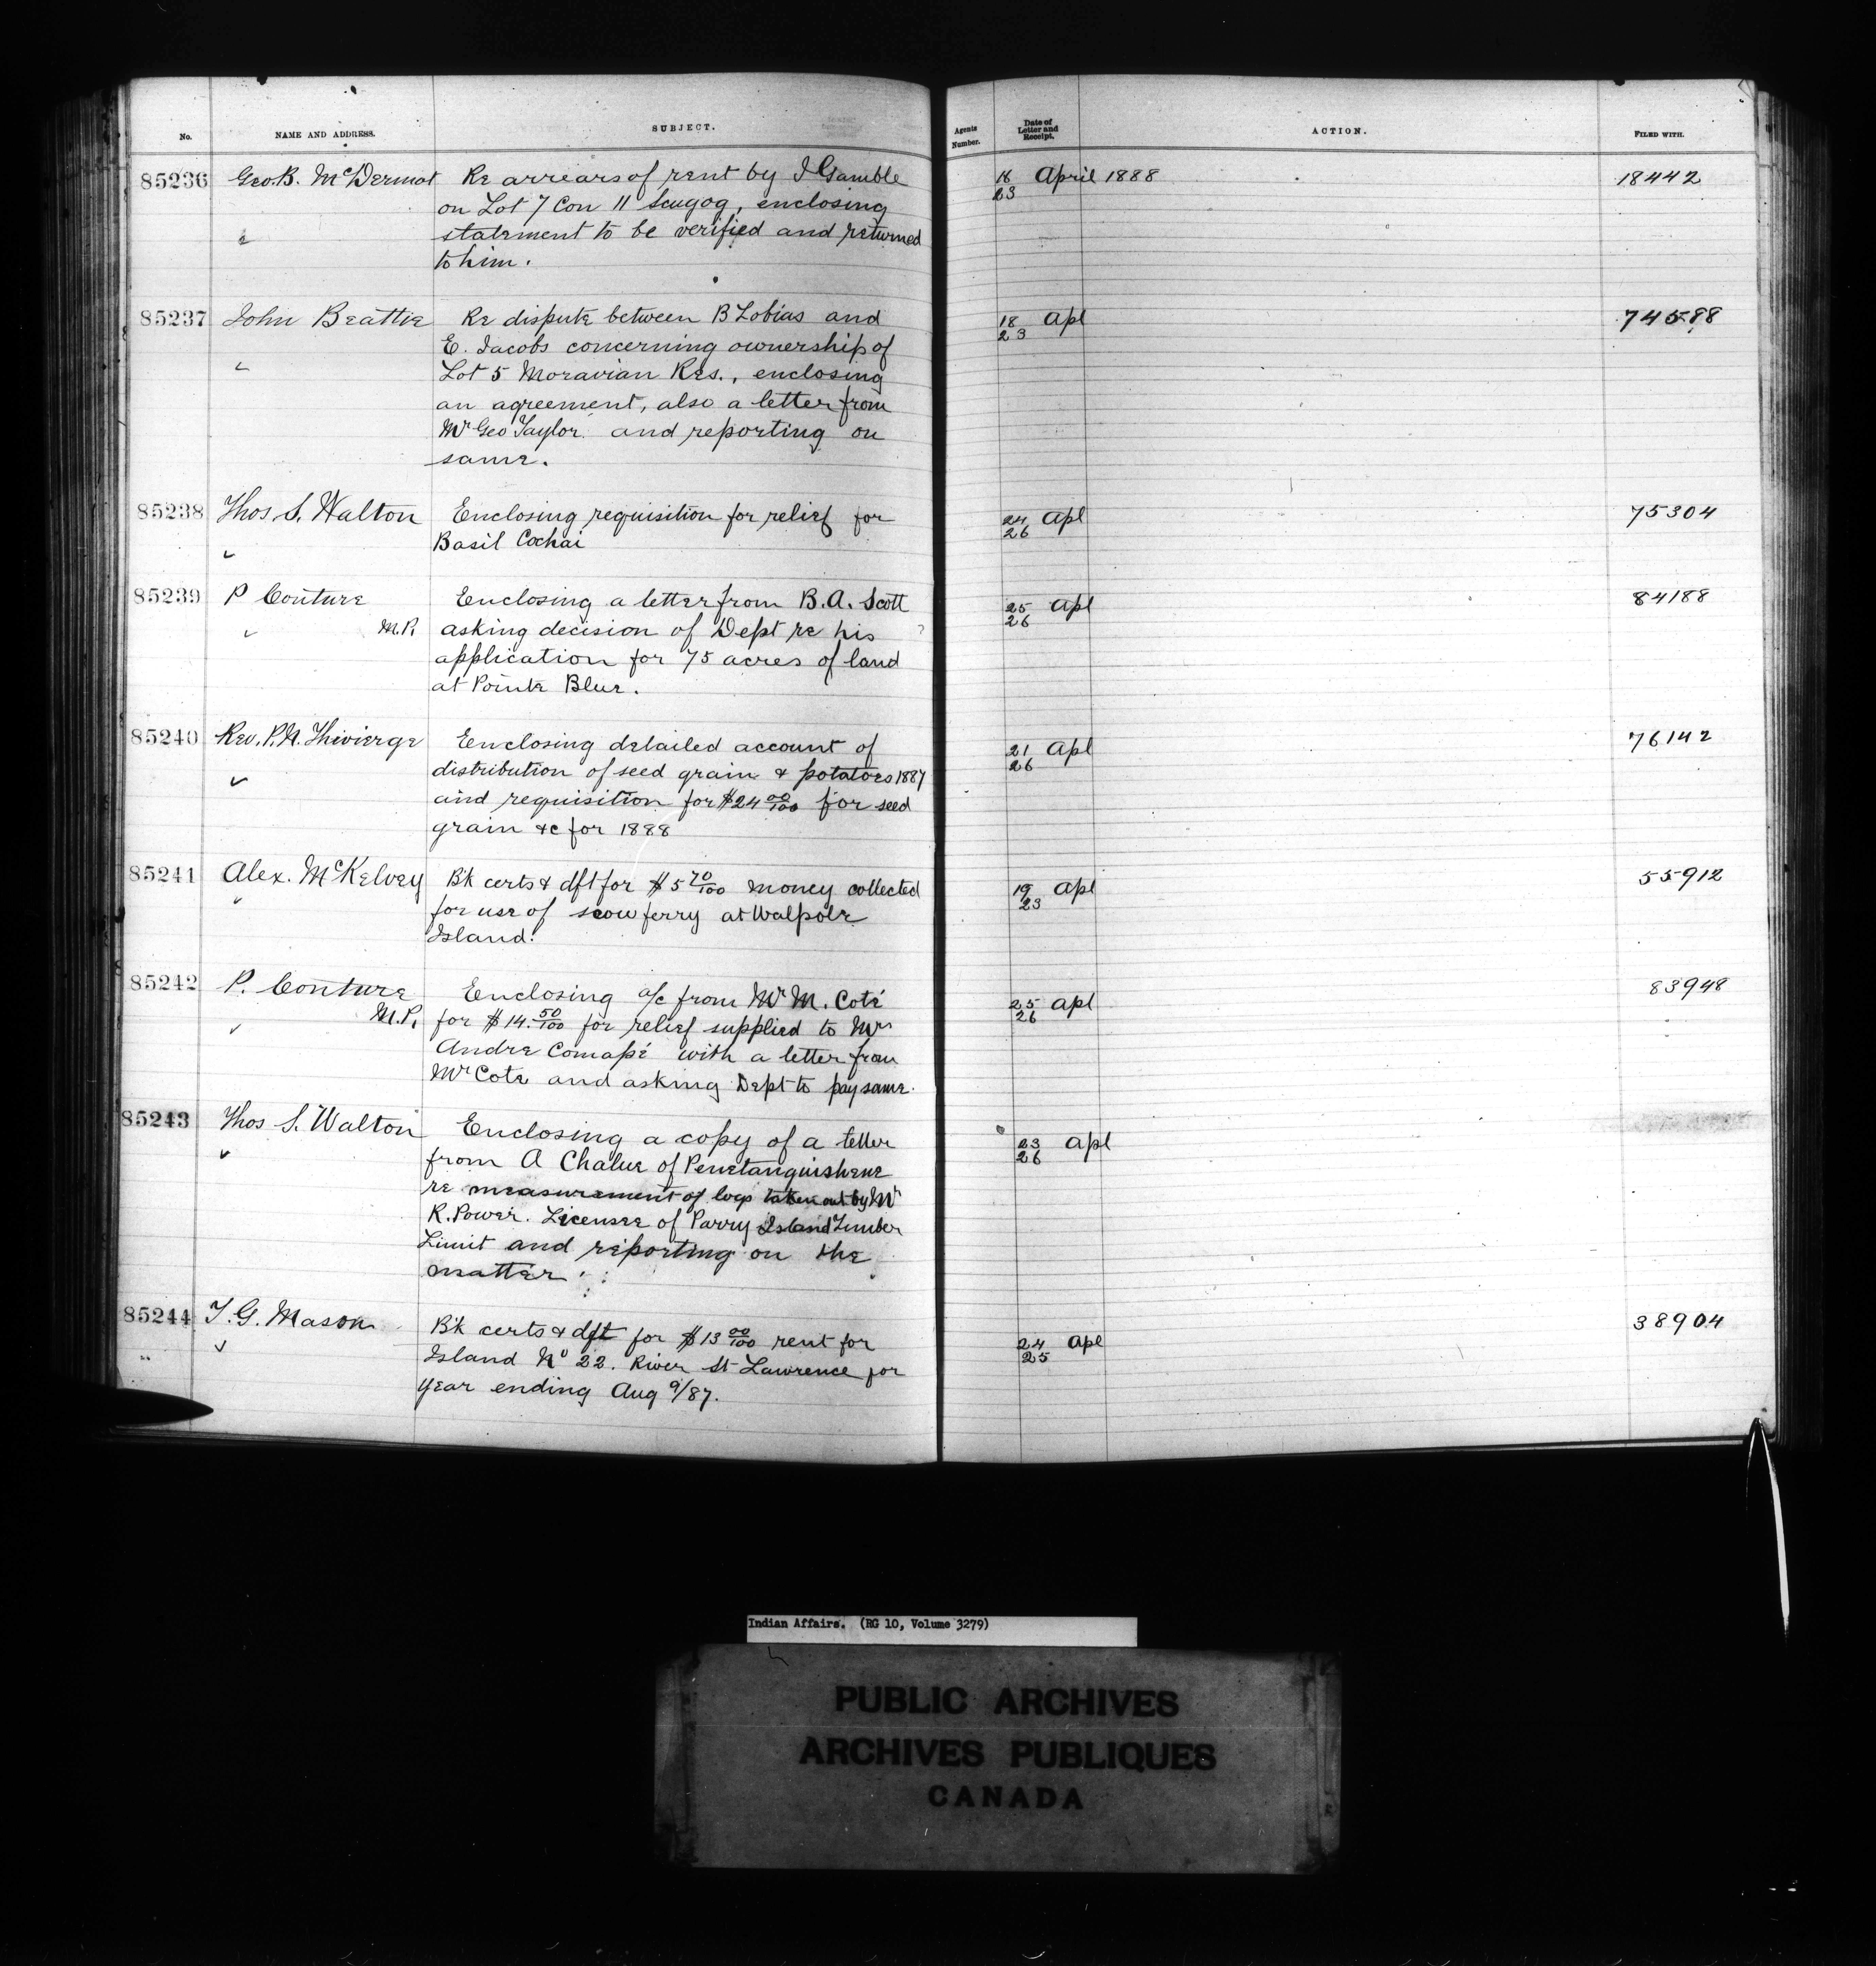 No. NAME AND ADDRESS. SUBJECT. Agents Number. Date of Letter and Receipt. ACTION. FILED WITH.
85236 Geo. B. McDermot Re arrears of rent by I Gamble 16 April 1888 18442
on Lot 7 Con 11 Scugog, enclosing 23
statement to be verified and returned
to him.
85237 John Beattie Re dispute between B Tobias and 18 Apl 74588
E. Jacobs concerning ownership of 23
Lot 5 Moravian Res., enclosing
an agreement, also a letter from
Mr Geo Taylor and reporting on
same.
85238 Thos S. Walton Enclosing requisition for relief for 24 Apl 75304
Basil Cochai 26
85239 P Couture Enclosing a letter from B.A. Scott 25 Apl 84188
M.P. asking decision of Dept re his 26
application for 75 acres of land
at Pointe Blue.
85240 Rev. P.N. Thivierge Enclosing detailed account of 21 Apl 76142
distribution of seed grain & potatoes 1887 26
and requisition for $24 00/100 for seed
grain &c for 1888
85241 Alex. McKelvey B'k certs & dft for $5 70/100 money collected 19 Apl 55912
for use of scow ferry at Walpole 23
Island.
85242 P. Couture Enclosing a/c from Mr M. Coté 25 Apl 83948
M.P. for $14. 50/100 for relief supplied to Mrs 26
Andre Comapé with a letter from
Mr Cote and asking Dept to pay same.
85243 Thos S. Walton Enclosing a copy of a letter 23 Apl
from A Chalue of Penetanguishene 26
re measurement of logs taken out by Mr
R. Power. Licensee of Parry Island Timber
Limit and reporting on the
matter.
85244 T. G. Mason B'k certs & dft for $13 00/100 rent for 24 Apl 38904
Island No 22. River St Lawrence for 25
year ending Aug 9/87.
Indian Affairs. (RG 10, Volume 3279)
PUBLIC ARCHIVES
ARCHIVES PUBLIQUES
CANADA